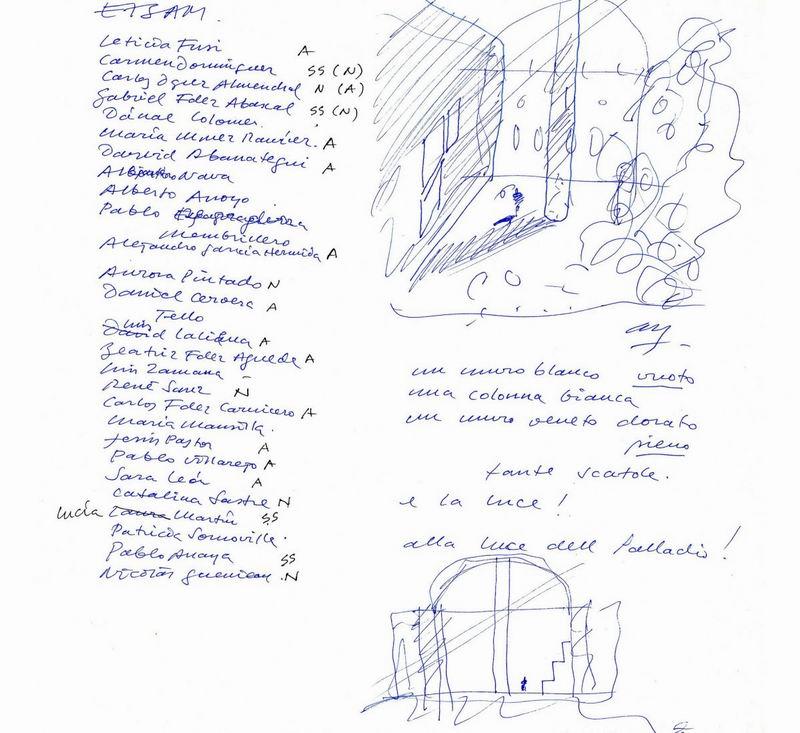 ETSAM.
Leticia Fusi A
Carmen Domínguez SS (N)
Carlos Almendral N (A)
Gabriel Fdez Abascal SS (N)
Dánae Colomer.
María A
David A
Nava
Alberto Anoyo
Pablo
Membrillero
Alejandro García Hermida A
Aurora Pintado N
Daniel Cervera A
Tello
Luis
David A
Beatriz Fdez Agueda A
Luis Zamana -
René Sanz N
Carlos Fdez Carnicero A
María Mansilla.
Jesús Pastor A
Pablo Villarejo A
Sara León A
Catalina Sastre N
Lucía Laura Martín SS
Patricia Somoville.
Pablo Anaya SS
Nicolás .N
un muro blanco vuoto
una colonna bianca
un muro veneto dorato
pieno
tante scatole.
e la luce!
alla luce dell Palladio!